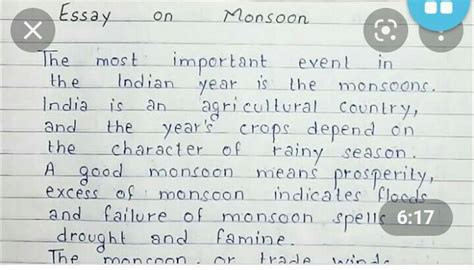 Essay on Monsoon
The most important event in
the Indian year is the monsoons.
India is an agricultural country,
and the year's crops depend on
the character of rainy season.
A good monsoon means prosperity,
excess of monsoon indicates floods
and failure of monsoon spells
6:17
drought and famine.
The monsoon or trade winds